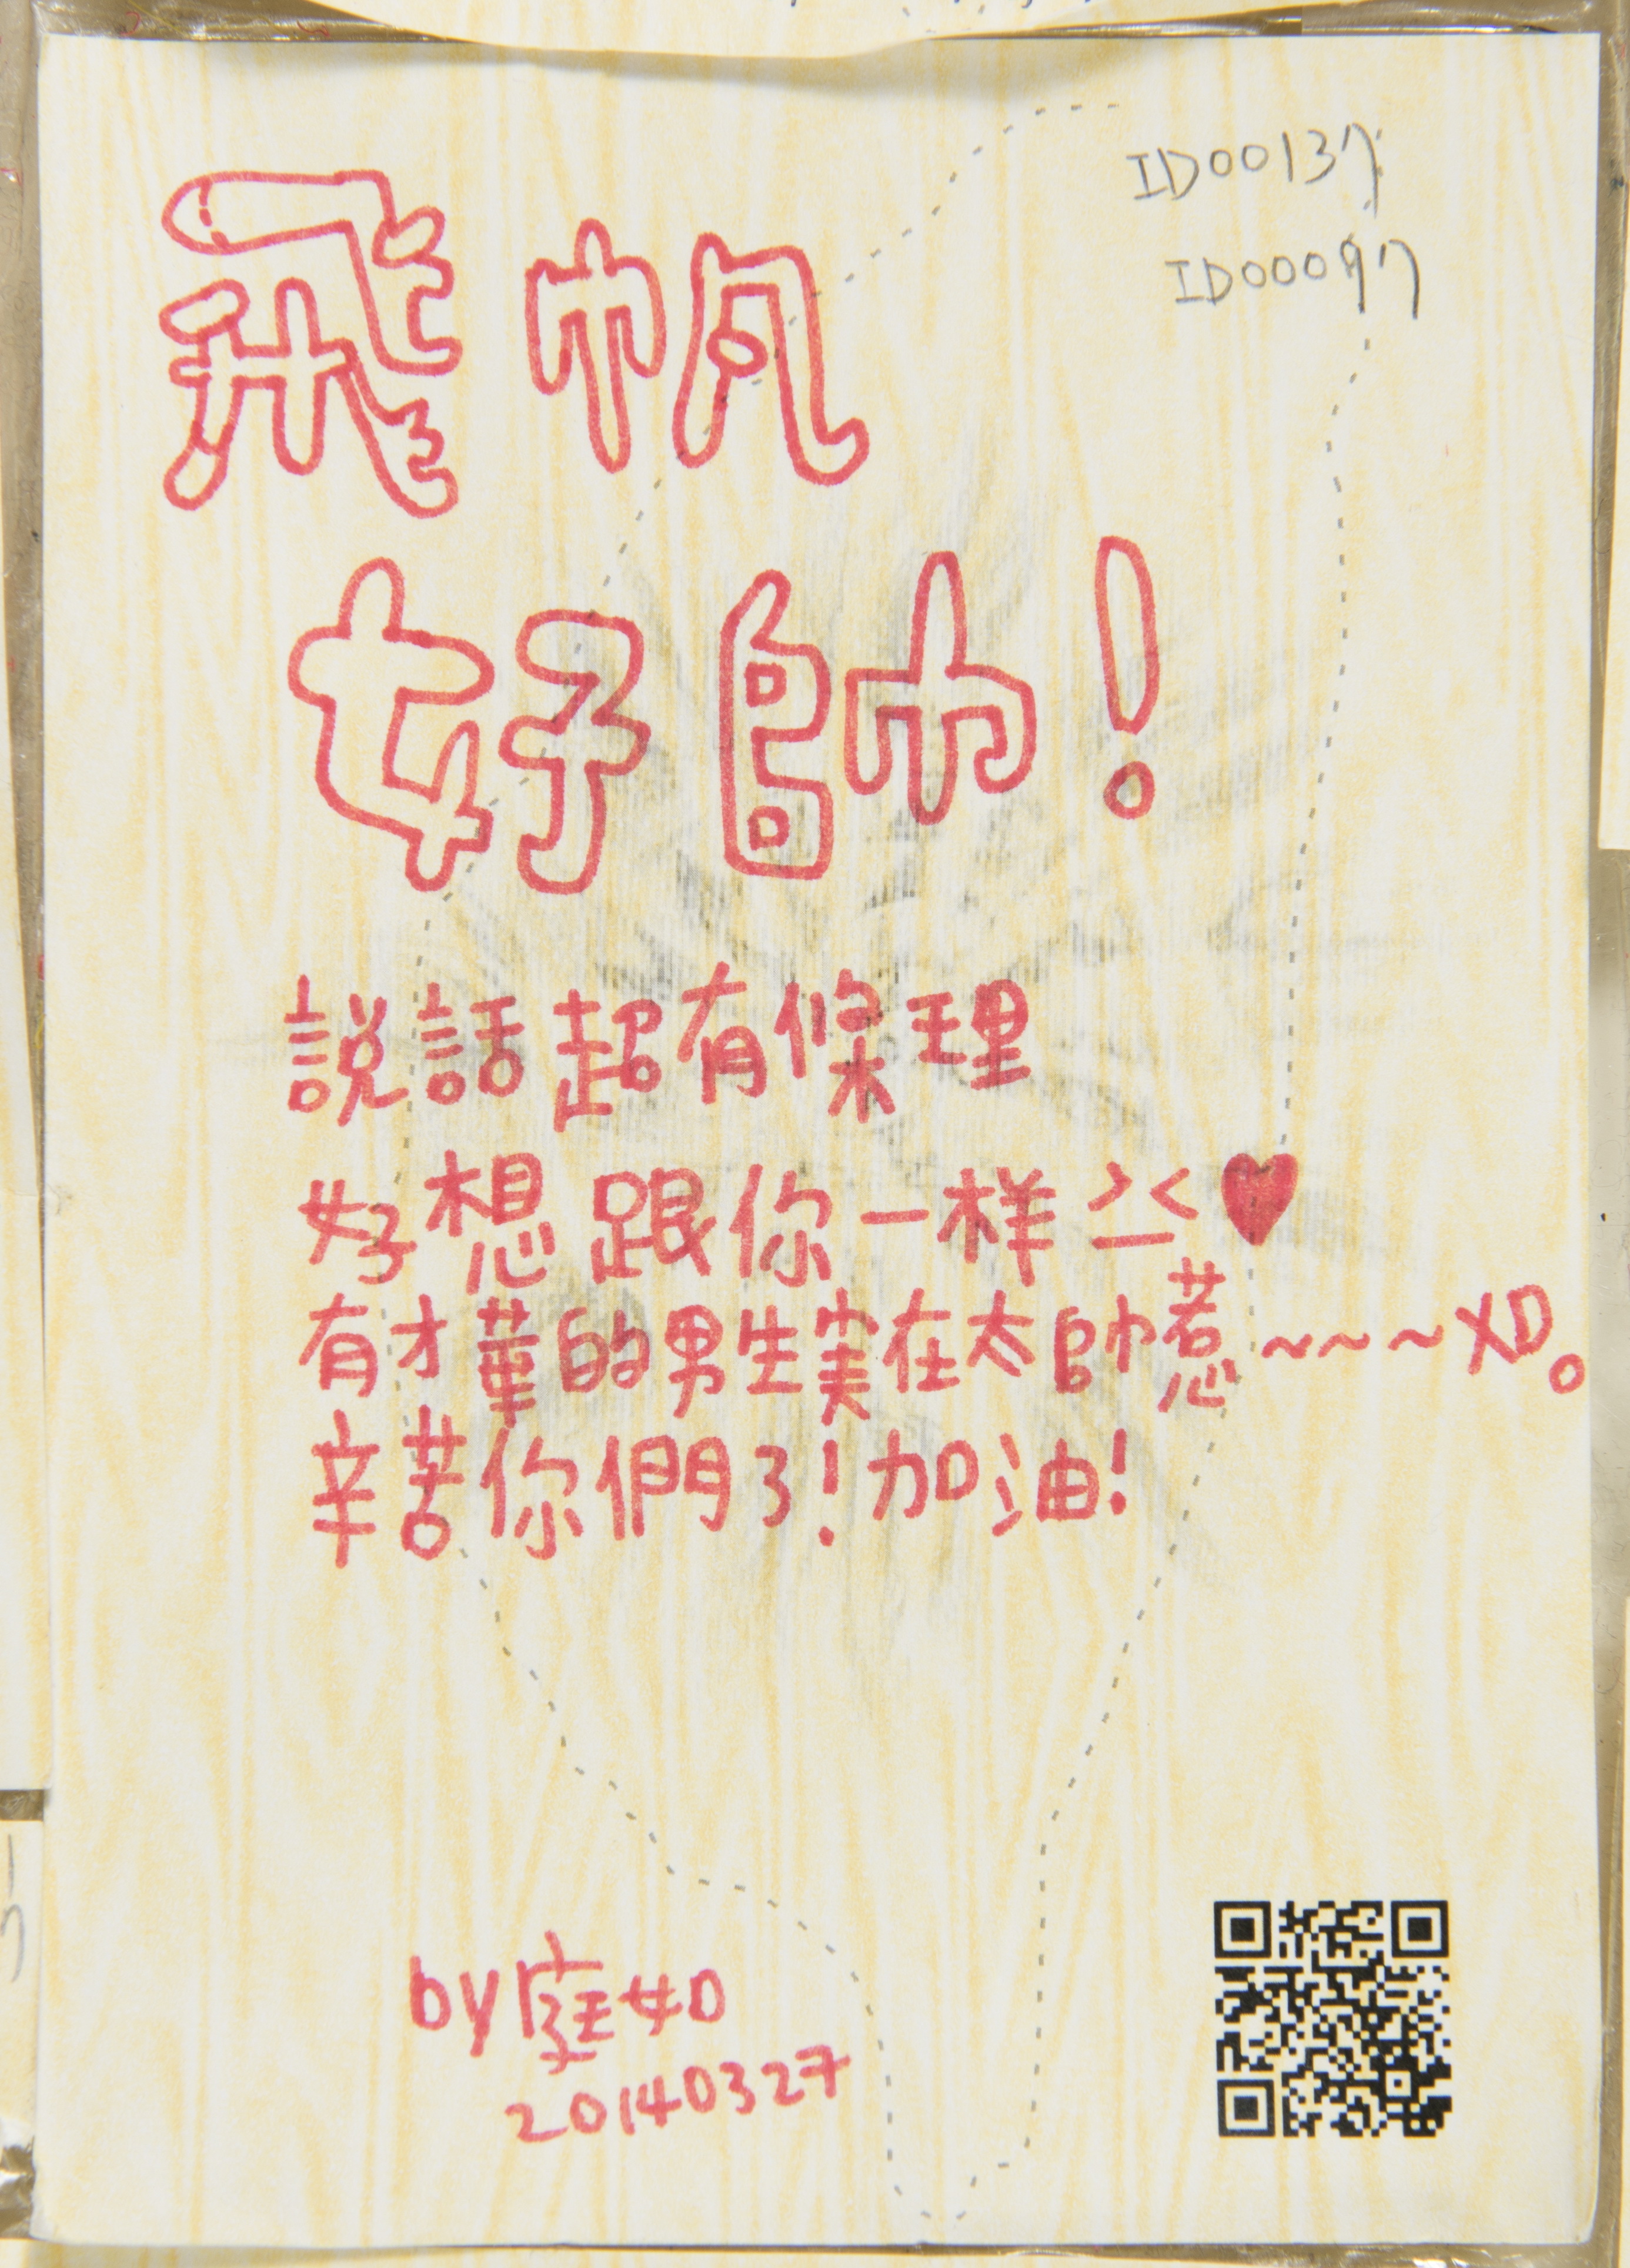 ID00137
ID00097
飛帆
好帥!
説話超有條理
好想跟你一样>_<♥
有才華的男生実在太帥惹~~~XD。
辛苦你們了!加油!
by庭如
20140327